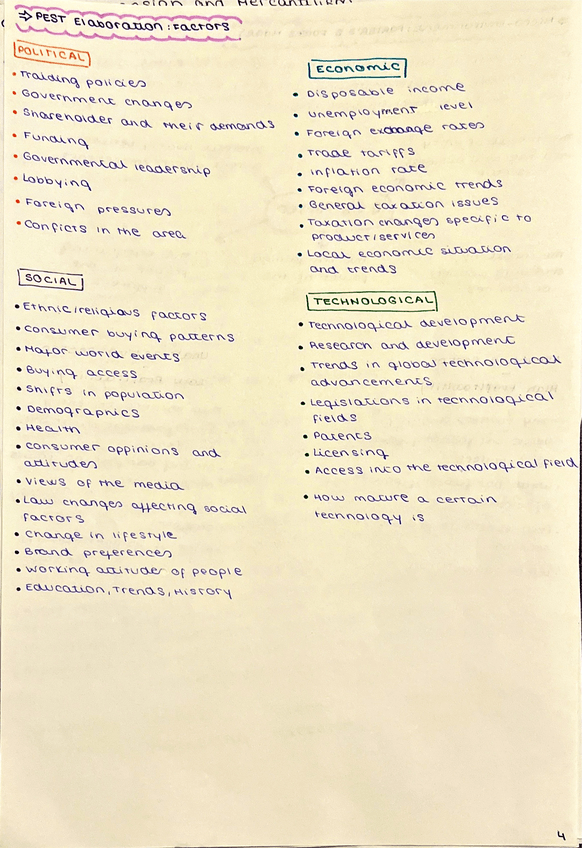 ⇒ PEST Elaboration: Factors
POLITICAL
• Traiding policies
• Government changes
• Shareholder and their demands
• Funding
• Governmental leadership
• Lobbying
• Foreign pressures
• Conficts in the area
Economic
• Disposable income
• unemployment level
• Foreign exchange rates
• Trade tariffs
• Inflation rate
• Foreign economic trends
• General taxation issues
• Taxation changes specific to
product/services
• Local economic situation
and trends
SOCIAL
• Ethnic/religious factors
• Consumer buying patterns
• Major world events
• Buying access
• Shifts in population
• Demographics
• Health
• Consumer oppinions and
attitudes
• Views of the media
• Law changes affecting social
factors
• Change in lifestyle
• Brand preferences
• Working attitudes of people
• Education, Trends, History
TECHNOLOGICAL
• Technological development
• Research and development
• Trends in global technological
advancements
• Legislations in technological
fields
• Patents
• Licensing
• Access into the technological field
• How mature a certain
technology is
4